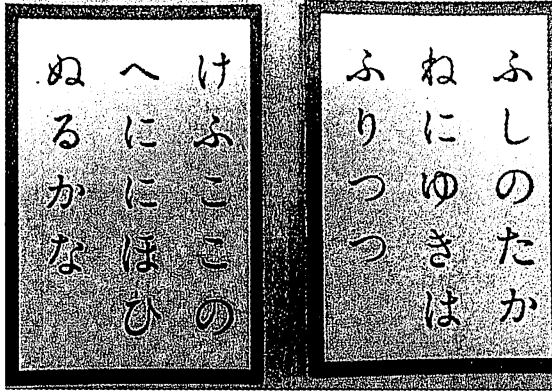 ふしのたか
ねにゆきは
ふりつつ
けふここの
へににほひ
ぬるかな